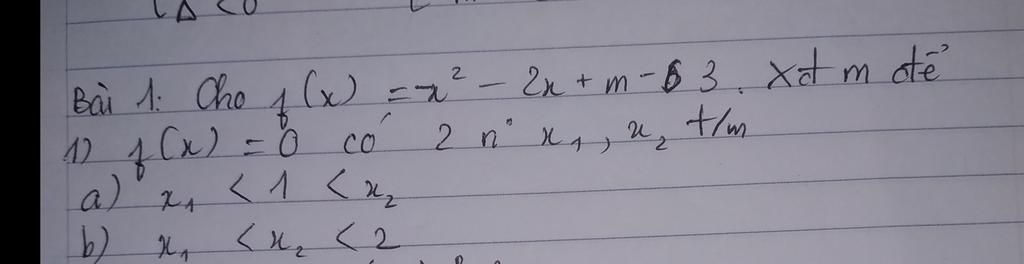 Δ < 0
Bài 1: Cho f(x) = x² - 2x + m - 3. Xđ m để
1) f(x) = 0 có 2 n° x₁, x₂ t/m
a) x₁ < 1 < x₂
b) x₁ < x₂ < 2